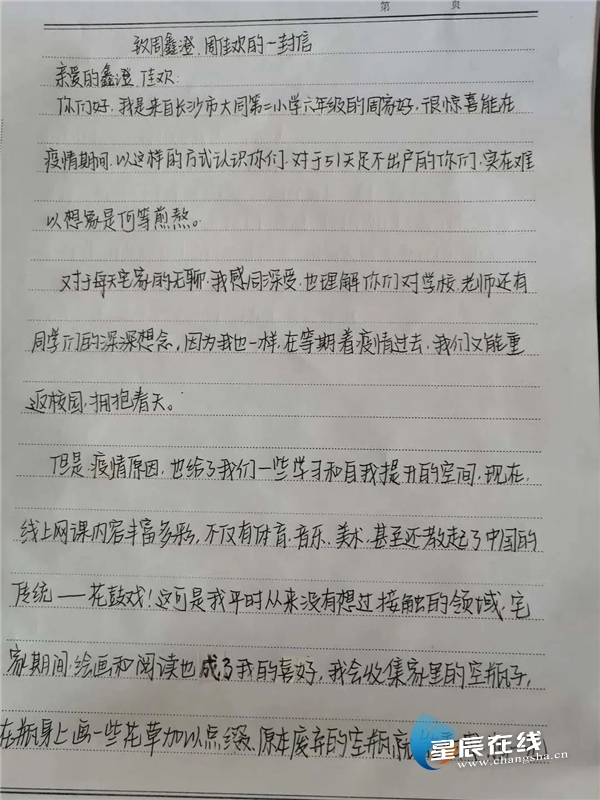 第 页
致周鑫澄、周佳欢的一封信
亲爱的鑫澄、佳欢:
你们好,我是来自长沙市大同第二小学六年级的周家好,很惊喜能在
疫情期间,以这样的方式认识你们.对于51天足不出户的你们,实在难
以想象是何等煎熬。
对于每天宅家的无聊,我感同深受,也理解你们对学校、老师还有
同学们的深深想念,因为我也一样,在等期着疫情过去,我们又能重
返校园,拥抱春天。
但是,疫情原因,也给了我们一些学习和自我提升的空间,现在,
线上网课内容丰富多彩,不仅有体育、音乐、美术,甚至还教起了中国的
传统——花鼓戏!这可是我平时从来没有想过接触的领域,宅
家期间,绘画和阅读也成了我的喜好,我会收集家里的空瓶子,
在瓶身上画一些花草加以点缀,原本废弃的空瓶,就
星辰在线
www.changsha.cn